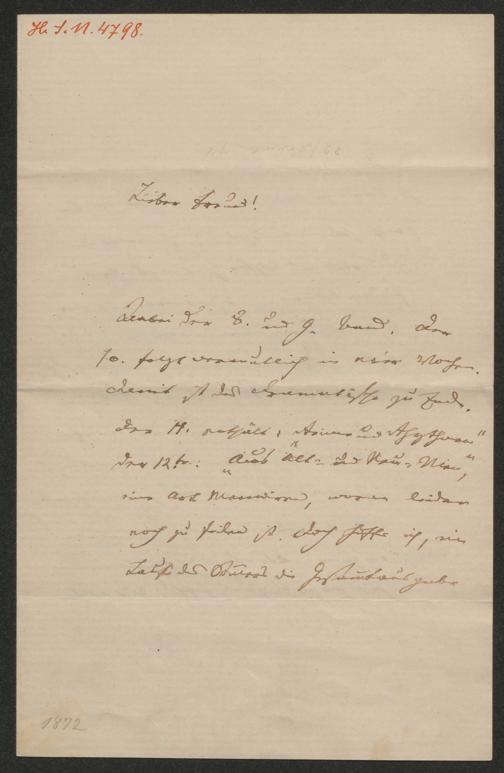 H. I. N. 4798.
Lieber Freund!
Anbei der 8. und 9. Band. Der
10. folgt vermuthlich in vier Wochen.
Damit ist das Dramatische zu Ende.
Der 11. enthält: „Reime und Rhythmen“
der 12te: „Aus Alt= und Neu=Wien“,
eine Art Memoiren, woran leider
noch zu feilen ist. Doch hoffe ich, im
Laufe des die Gesammtausgabe
1872